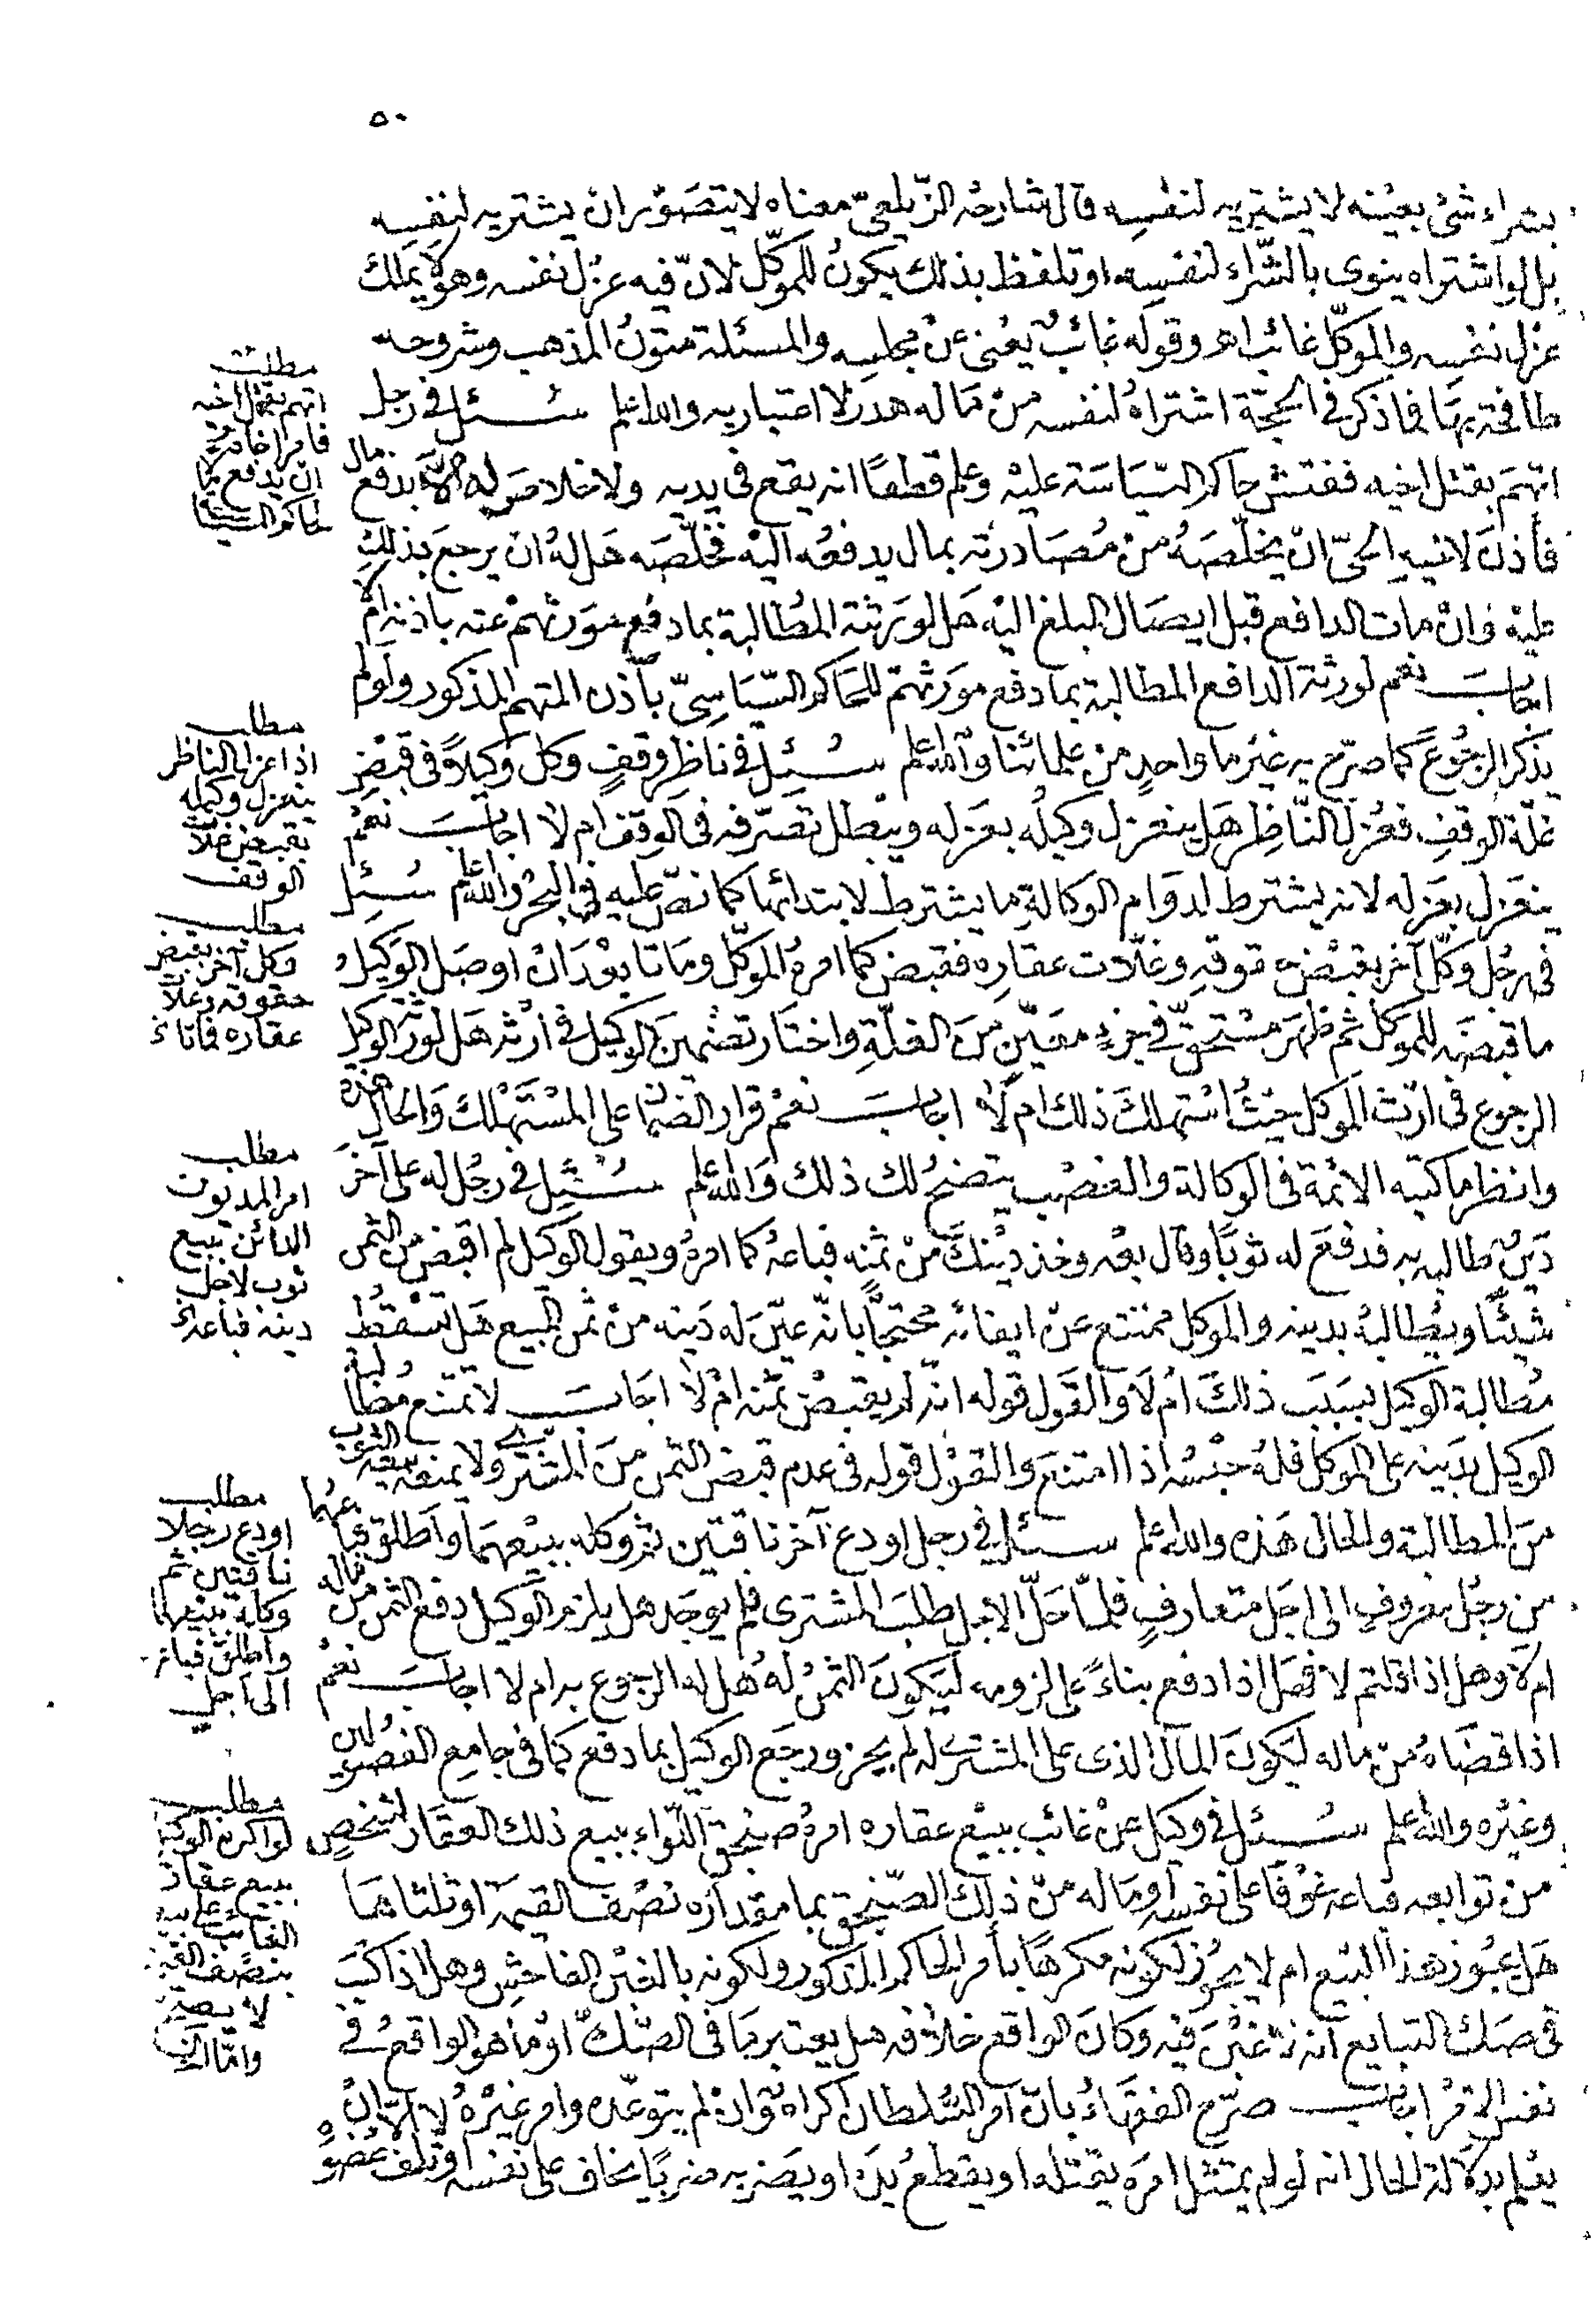 ٥٠
بشراء شئ بعينه لا يشتريه لنفسه قال شارحه الزّيلعىّ معناه لا يتصوّر ان يشتريه لنفسه
بل لو اشتراه ينوى بالشّراء لنفسه او تلفظ بذلك يكون للموكّل لانّ فيه عزل نفسه وهو لا يملك
عزل نفسه والموكّل غائب اهـ وقوله غائب يعنى عن مجلسه والمسئلة متون المذهب وشروحه
طافحة بها فما ذكر فى الحجّة اشتراه لنفسه من ماله هدر لا اعتبار به والله اعلم سئل فى رجل
اتهم بقتل اخيه ففتش حاكم السّياسة عليه وعلم قطعًا انه يقع فى يديه ولا خلاص له الّا بدفع مال
فأذن لاخيه الحىّ ان يخلّصه من مصادرته بمال يدفعه اليه فخلّصه هل له ان يرجع بذلك
عليه وان مات الدافع قبل ايصال المبلغ اليه هل لورثته المطالبة بما دفع مورثهم عنه باذنه ام لا
اجاب نعم لورثة الدافع المطالبة بما دفع مورثهم للحاكم السّياسىّ بأذن المتهم المذكور ولو لم
يذكر الرجوع كما صرّح به غير ما واحد من علمائنا والله اعلم سئل فى ناظر وقف وكل وكيلاً فى قبض
غلّة الوقف فعزل النّاظر هل ينعزل وكيله بعزله ويبطل تصرّفه فى الوقف ام لا اجاب نعم
ينعزل بعزله لانه يشترط لدوام الوكالة ما يشترط لابتدائها كما نصّ عليه فى البحر والله اعلم سئل
فى رجل وكّل آخر بقبض حقوقه وغلّات عقاره فقبض كما امره الموكّل وماتا بعد ان اوصل الوكيل
ما قبضه للموكل ثم ظهر مستحقّ فى جزء معيّن من الغلّة واختار تضمين الوكيل فى ارثه هل لورثة الوكيل
الرجوع فى ارث الموكل حيث استهلك ذلك ام لا اجاب نعم قرار الضمان على المستهلك والحال هذه
وانظر ما كتبه الائمة فى الوكالة والغصب يتضح لك ذلك والله اعلم سئل فى رجل له على آخر
دين طالبه به فدفع له ثوبًا وقال بعه وخذ دينك من ثمنه فباعه كما امره ويقول الوكيل لم اقبض من الثمن
شيئًا ويطالبه بدينه والموكل ممتنع عن ايفائه محتجًّا بانّه عيّن له دينه من ثمن المبيع هل تسقط
مطالبة الوكيل بسبب ذلك ام لا والقول قوله انّه لم يقبض ثمنه ام لا اجاب لا تمتنع مطالبة
الوكيل بدينه على الموكل فله حبسه اذا امتنع والقول قوله فى عدم قبض الثمن من المشترى ولا يمنعه بيعه الثوب
من المطالبة والحال هذه والله اعلم سئل فى رجل اودع آخر ناقتين ثم وكله ببيعهما واطلق فباعهما
من رجل معروف الى اجل متعارف فلمّا حلّ الاجل طلب المشترى فلم يوجد هل يلزم الوكيل دفع الثمن من ماله
ام لا وهل اذا قلتم لا فهل اذا دفع بناءً على لزومه ليكون الثمن له هل له الرجوع به ام لا اجاب نعم
اذا قضاه من ماله ليكون المال الذى على المشترى له لم يجز ورجع الوكيل بما دفع كما فى جامع الفصولين
وغيره والله اعلم سئل فى وكيل عن غائب ببيع عقاره امره صنجق اللّواء ببيع ذلك العقار لشخص
من توابعه فباعه خوفًا على نفسه وماله من ذلك الصّنجق بما مقداره نصف القيمة او ثلثاها
هل يجوز هذا البيع ام لا يجوز لكونه مكرهًا بأمر الحاكم المذكور ولكونه بالغبن الفاحش وهل اذا كتب
فى صك التبايع انه لا غبن فيه وكان الواقع خلافه هل يعتبر ما فى الصّكّ او ما هو الواقع فى
نفس الامر اجاب صرّح الفقهاء بانّ امر السّلطان اكراه وان لم يتوعّده وامر غيره لا الّا ان
يعلم بدلالة الحال انه لو لم يمتثل امره يقتله او يقطع يده او يضربه ضربًا يخاف على نفسه او تلف عضوه
مطلب
اتهم بقتل اخيه
فامر اخاه
ان يدفع مالا
لحاكم السياسة
مطلب
اذا عزل الناظر
ينعزل وكيله
بقبض غلّة
الوقف
مطلب
وكل آخر بقبض
حقوقه وغلات
عقاره فماتا
مطلب
امر المديون
الدائن ببيع
ثوب لاجل
دينه فباعه
مطلب
اودع رجلا
ناقتين ثم
وكله ببيعهما
واطلق فباع
الى اجل
مطلب
لو اكره الوكيل
ببيع عقار
الغائب على بيعه
بنصف القيمة
لا يصح